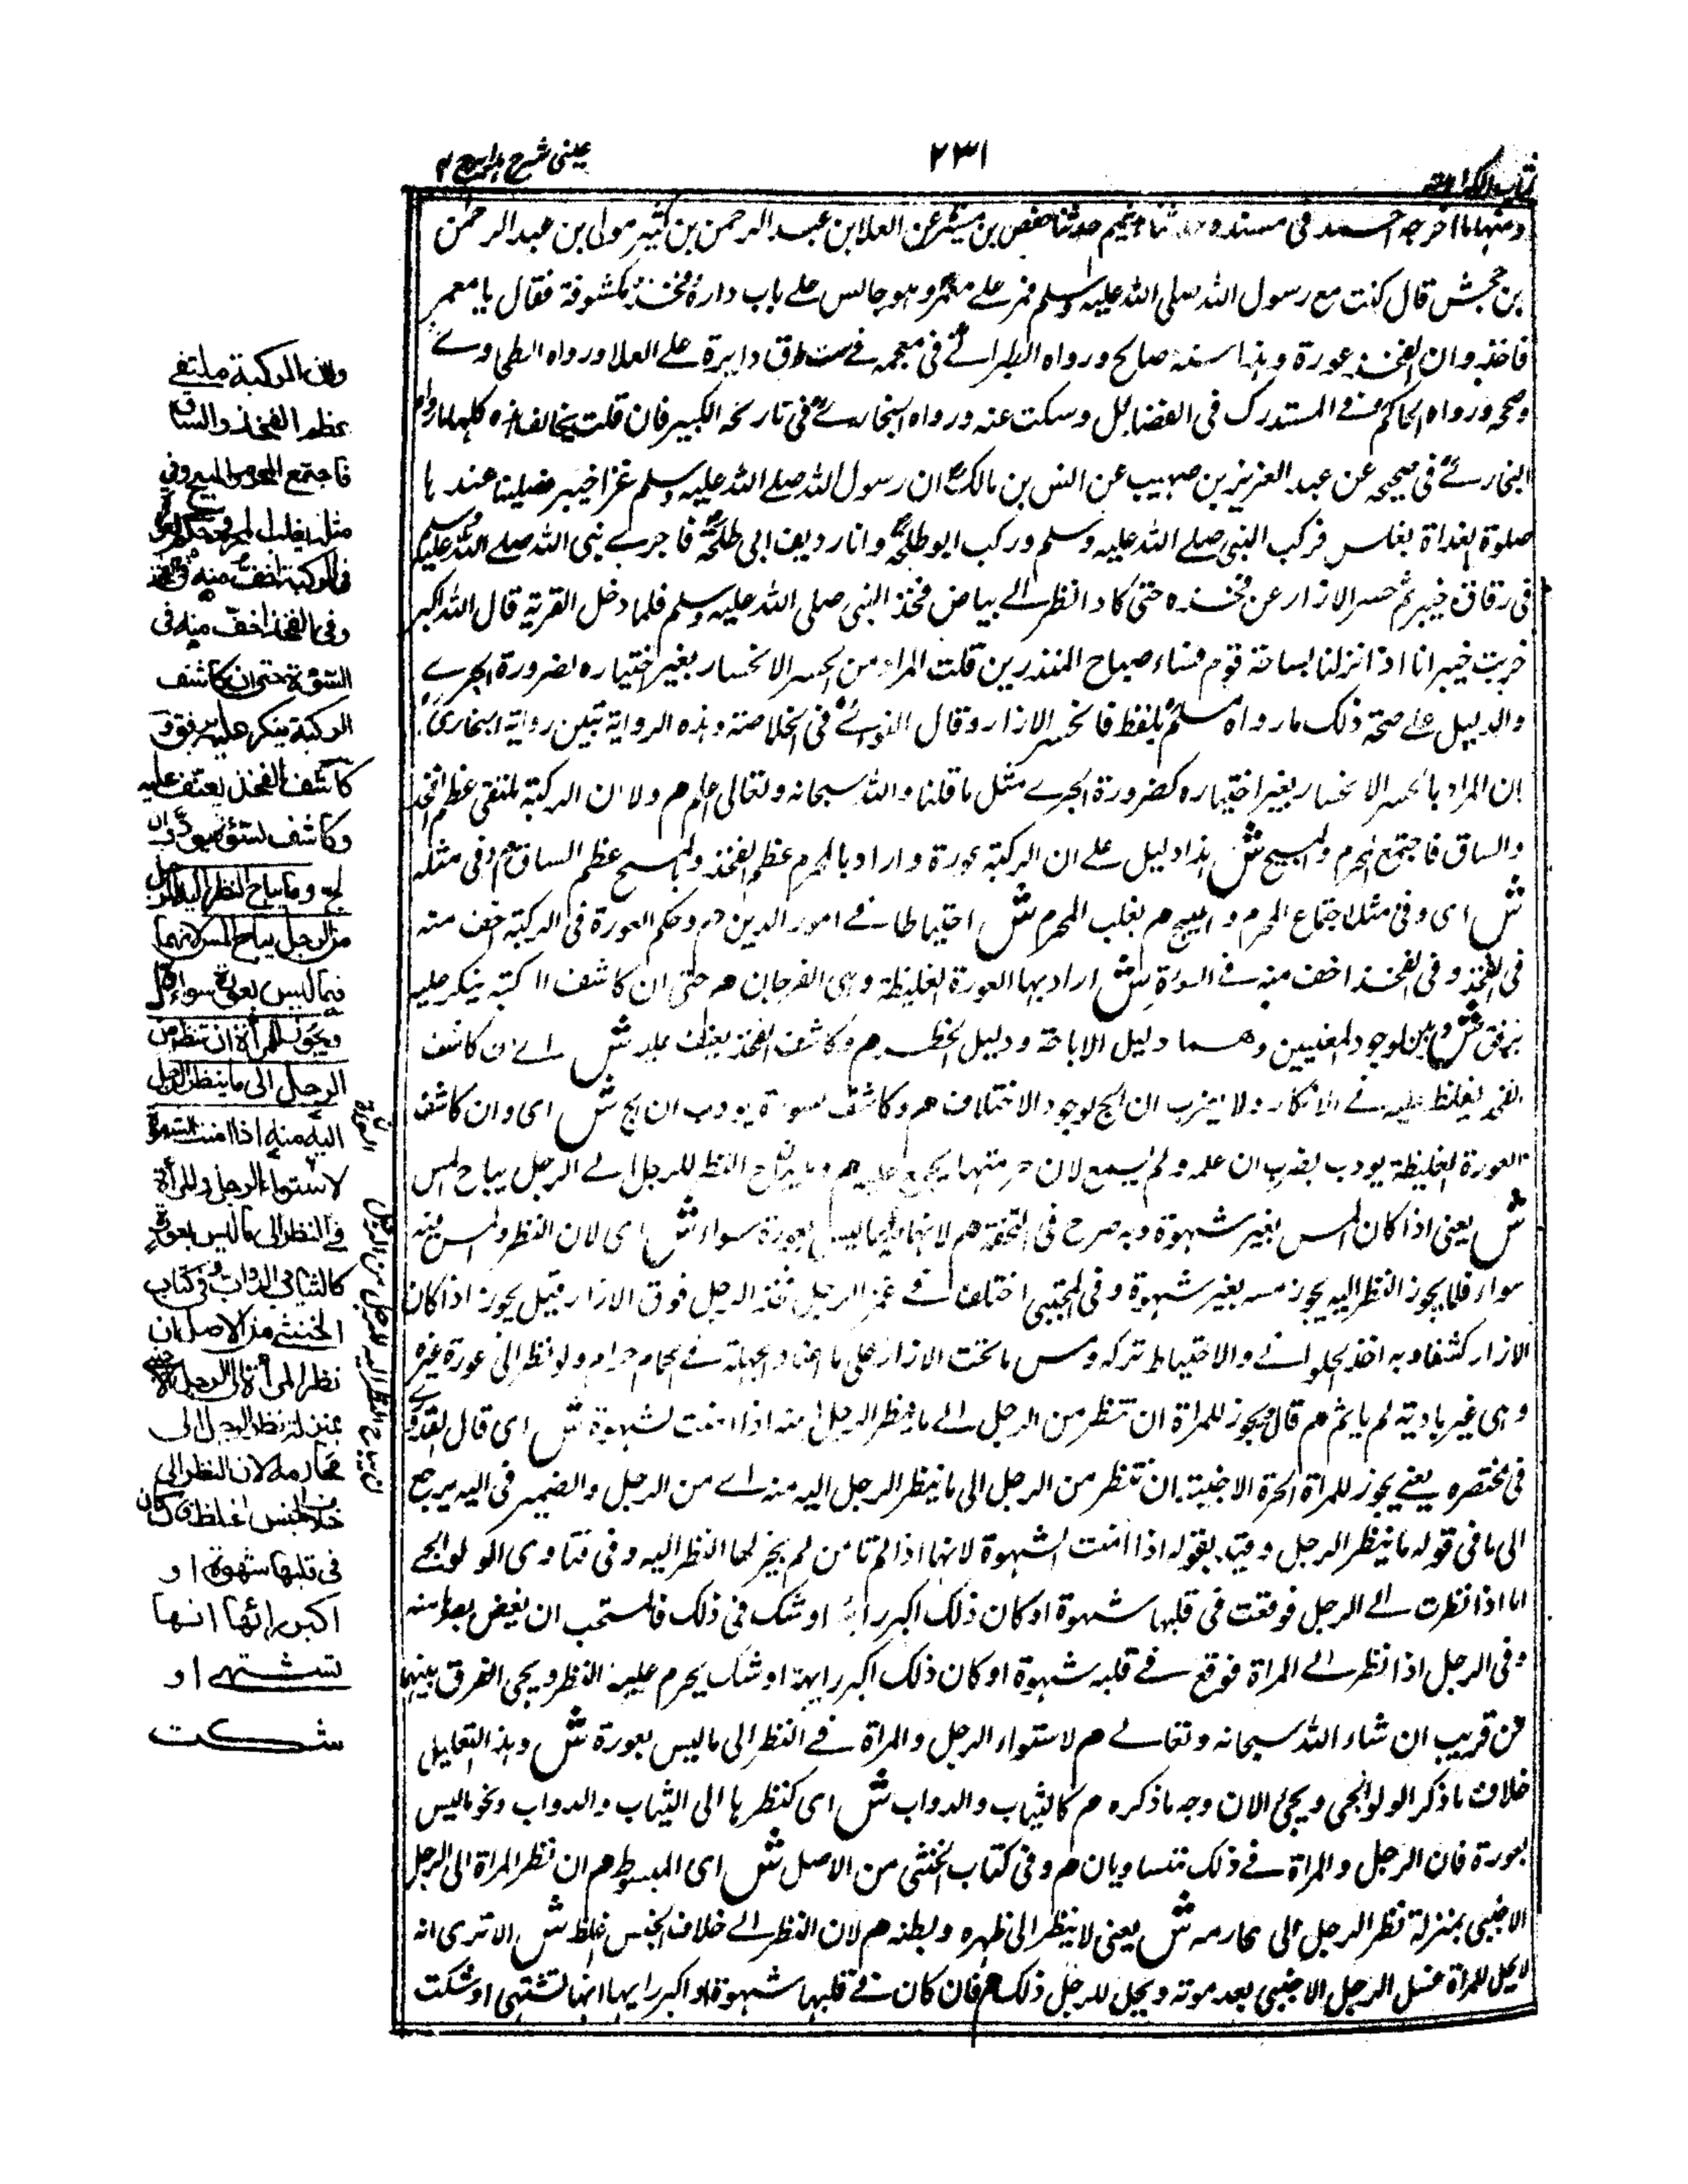 كتاب الكراهة
٢٣١
عينى شرح هداية ج ٤
ومنها ما اخرجه احمد فى مسنده حدثنا هيثم حدثنا حفص بن ميسرة عن العلا بن عبد الرحمن بن كثير مولى بن عبد الرحمن
بن جحش قال كنت مع رسول الله صلى الله عليه وسلم فمر على معمر وهو جالس على باب داره وفخذه مكشوفة فقال يا معمر
فاخذه وان الفخذ عورة وهذا سند صالح ورواه الطبرانى فى معجمه فى ست طرق دايرة على العلا ورواه الطحاوى
وصححه ورواه الحاكم فى المستدرك فى الفضايل وسكت عنه ورواه البخارى فى تاريخه الكبير فان قلت يخالف هذه كلها ما رواه
البخارى فى صحيحه عن عبد العزيز بن صهيب عن انس بن مالك ان رسول الله صلى الله عليه وسلم غزا خيبر فصلينا عندها
صلوة الغداة بغلس فركب النبى صلى الله عليه وسلم وركب ابو طلحة وانا رديف ابى طلحة فاجرى نبى الله صلى الله عليه وسلم
فى زقاق خيبر ثم حسر الازار عن فخذه حتى كاد انظر الى بياض فخذ النبى صلى الله عليه وسلم فلما دخل القرية قال الله اكبر
خربت خيبر انا اذا نزلنا بساحة قوم فساء صباح المنذرين قلت المراد من الحسر الانحسار بغير اختياره لضرورة الجرى
والدليل على صحة ذلك ما رواه مسلم بلفظ فانحسر الازار وقال النووى فى الخلاصة وهذه الرواية تبين رواية البخارى
ان المراد بالحسر الانحسار بغير اختياره كضرورة الجرى مثل ما قلنا والله سبحانه وتعالى اعلم م ولان الركبة ملتقى عظم الفخذ
والساق فاجتمع المحرم والمبيح ش هذا دليل على ان الركبة عورة واراد بالمحرم عظم الفخذ والمبيح عظم الساق م وفى مثله
ش اى وفى مثل اجتماع المحرم والمبيح م يغلب المحرم ش احتياطا فى امور الدين م وحكم العورة فى الركبة اخف منه
فى الفخذ وفى الفخذ اخف منه فى السوءة ش اراد بها العورة الغليظة وهى الفرجان م حتى ان كاشف الركبة ينكر عليه
برفق ش لوجود المعنيين وهما دليل الاباحة ودليل الحظر م وكاشف الفخذ يعنف عليه ش اى ان كاشف
الفخذ يغلظ عليه فى الانكار ولا يضرب ان لج لوجود الاختلاف م وكاشف السوءة يودب ان لج ش اى وان كاشف
العورة الغليظة يودب بضرب ان علمه ولم يسمع لان حرمتها مجمع عليه م وما يباح النظر للرجل الى الرجل يباح المس
ش يعنى اذا كان المس بغير شهوة وبه صرح فى التحفة م لانهما فيما ليس بعورة سواء ش اى لان النظر والمس فيه
سواء فلما يجوز النظر اليه يجوز مسه بغير شهوة وفى المجتبى اختلف فى غمز الرجل فخذ الرجل فوق الازار قيل يجوز اذا كان
الازار كثيفا وبه اخذ الحلوانى والاحتياط تركه ومس ما تحت الازار على ما اعتاد الجهلة فى الحمام حرام ولو نظر الى عورة غيره
وهى غير بادية لم ياثم م قال ويجوز للمراة ان تنظر من الرجل الى ما ينظر الرجل اليه منه اذا امنت الشهوة ش اى قال القدورى
فى مختصره يعنى يجوز للمراة الحرة الاجنبية ان تنظر من الرجل الى ما ينظر الرجل اليه منه اى من الرجل والضمير فى اليه يرجع
الى ما فى قوله ما ينظر الرجل وقيد بقوله اذا امنت الشهوة لانها اذا لم تامن لم يجز لها النظر اليه وفى فتاوى الولوالجى
اما اذا نظرت الى الرجل فوقعت فى قلبها شهوة او كان ذلك اكبر رايها او شك فى ذلك فالمستحب ان تغض بصرها منه
وفى الرجل اذا نظر الى المراة فوقع فى قلبه شهوة او كان ذلك اكبر رايه او شك يحرم عليه النظر ويجى الفرق بينهما
عن قريب ان شاء الله سبحانه وتعالى م لاستواء الرجل والمراة فى النظر الى ما ليس بعورة ش وهذا التعليل
خلاف ما ذكر الولوالجى ويجى الان وجه ما ذكره م كالثياب والدواب ش اى كنظرها الى الثياب والدواب ونحو ما ليس
بعورة فان الرجل والمراة فى ذلك متساويان م وفى كتاب الخنثى من الاصل ش اى المبسوط م ان نظر المراة الى الرجل
الاجنبى بمنزلة نظر الرجل الى محارمه ش يعنى لا ينظر الى ظهره وبطنه م لان النظر الى خلاف الجنس اغلظ ش الا ترى انه
لا يحل للمراة غسل الرجل الاجنبى بعد موته ويحل للرجل ذلك م فان كان فى قلبها شهوة او اكبر رايها انها تشتهى او شكت
ولان الركبة ملتقى
عظم الفخذ والساق
فاجتمع المحرم والمبيح وفى
مثله يغلب المحرم وحكم العورة
فى الركبة اخف منه فى الفخذ
وفى الفخذ اخف منه فى
السوءة حتى ان كاشف
الركبة ينكر عليه برفق و
كاشف الفخذ يعنف عليه
وكاشف السوءة يودب ان
لج وما يباح النظر اليه للرجل
من الرجل يباح المس لانهما
فيما ليس بعورة سواء قال
ويجوز للمرأة ان تنظر من
الرجل الى ما ينظر الرجل
اليه منه اذا امنت الشهوة
لاستواء الرجل والمرأة
فى النظر الى ما ليس بعورة
كالثياب والدواب وفى كتاب
الخنثى من الاصل ان
نظر المرأة الى الرجل الاجنبى
بمنزلة نظر الرجل الى
محارمه لان النظر الى
خلاف الجنس اغلظ فان كان
فى قلبها شهوة او
اكبر رائها انها
تشتهى او
شكت